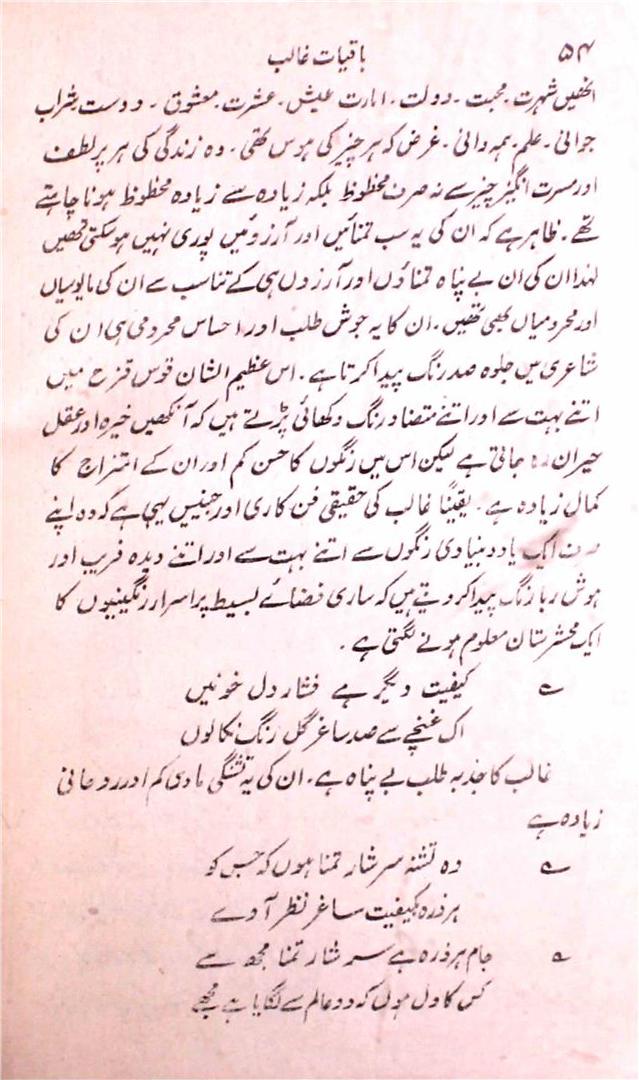 ۵۴
باقیات غالب
انھیں شہرت۔ محبت۔ دولت۔ امارت۔ عیش۔ عشرت۔ معشوق۔ دوست۔ شراب
جوانی۔ علم۔ ہمہ دانی۔ غرض کہ ہر چیز کی ہوس تھی۔ وہ زندگی کی ہر پر لطف
اور مسرت انگیز چیز سے نہ صرف محظوظ بلکہ زیادہ سے زیادہ محظوظ ہونا چاہتے
تھے۔ ظاہر ہے کہ ان کی یہ سب تمنائیں اور آرزوئیں پوری نہیں ہو سکتی تھیں
لہٰذا ان کی ان بے پناہ تمناؤں اور آرزوں ہی کے تناسب سے ان کی مایوسیاں
اور محرومیاں بھی تھیں۔ ان کا یہ جوش طلب اور احساس محرومی ہی ان کی
شاعری میں جلوہ صد رنگ پیدا کرتا ہے۔ اس عظیم الشان قوس قزح میں
اتنے بہت سے اور اتنے متضاد رنگ دکھائی پڑتے ہیں کہ آنکھیں خیرہ اور عقل
حیران رہ جاتی ہے لیکن اس میں رنگوں کا حسن کم اور ان کے امتزاج کا
کمال زیادہ ہے۔ یقیناً غالب کی حقیقی فن کاری اور جینیس یہی ہے کہ وہ اپنے
صرف ایک یا دو بنیادی رنگوں سے اتنے بہت سے اور اتنے دیدہ فریب اور
ہوش ربا رنگ پیدا کر دیتے ہیں کہ ساری فضائے بسیط پر اسرار رنگینیوں کا
ایک محشرستان معلوم ہونے لگتی ہے۔
؎ کیفیت دیگر ہے فشار دل خونیں
اک غنچے سے صد ساغر گل رنگ نکالوں
غالب کا جذبہ طلب بے پناہ ہے۔ ان کی یہ تشنگی مادی کم اور روحانی
زیادہ ہے
؎ وہ تشنہ سرشار تمنا ہوں کہ جس کو
ہر ذرہ بکیفیت ساغر نظر آوے
؎ جام ہر ذرہ ہے سرشار تمنا مجھ سے
کس کا دل ہوں کہ دو عالم سے لگایا ہے مجھے